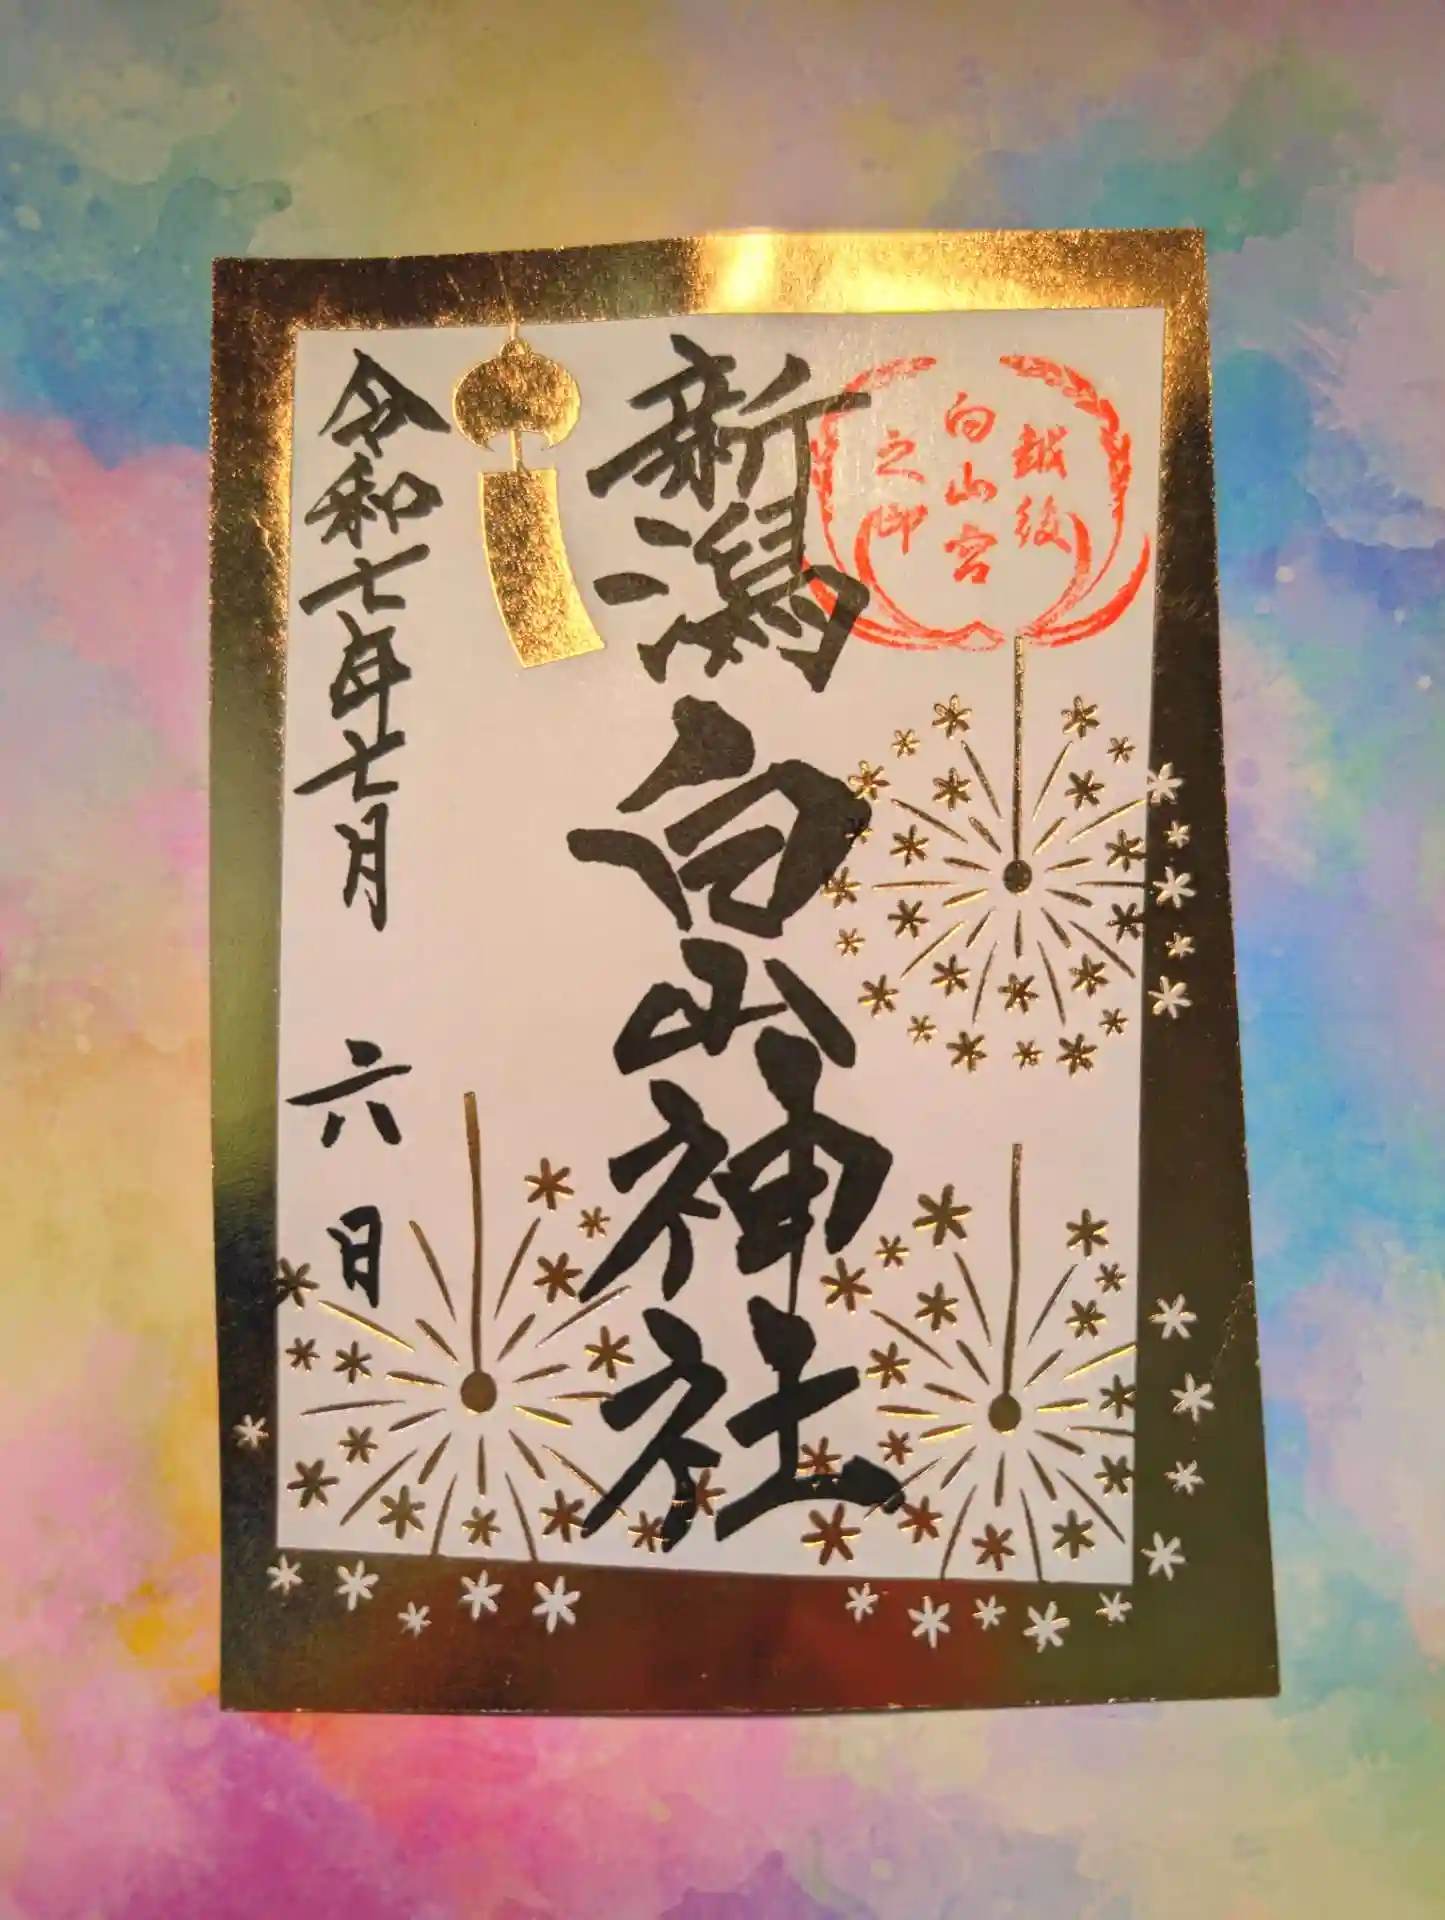 越後
白山宮
之印
新潟白山神社
令和七年七月 六日